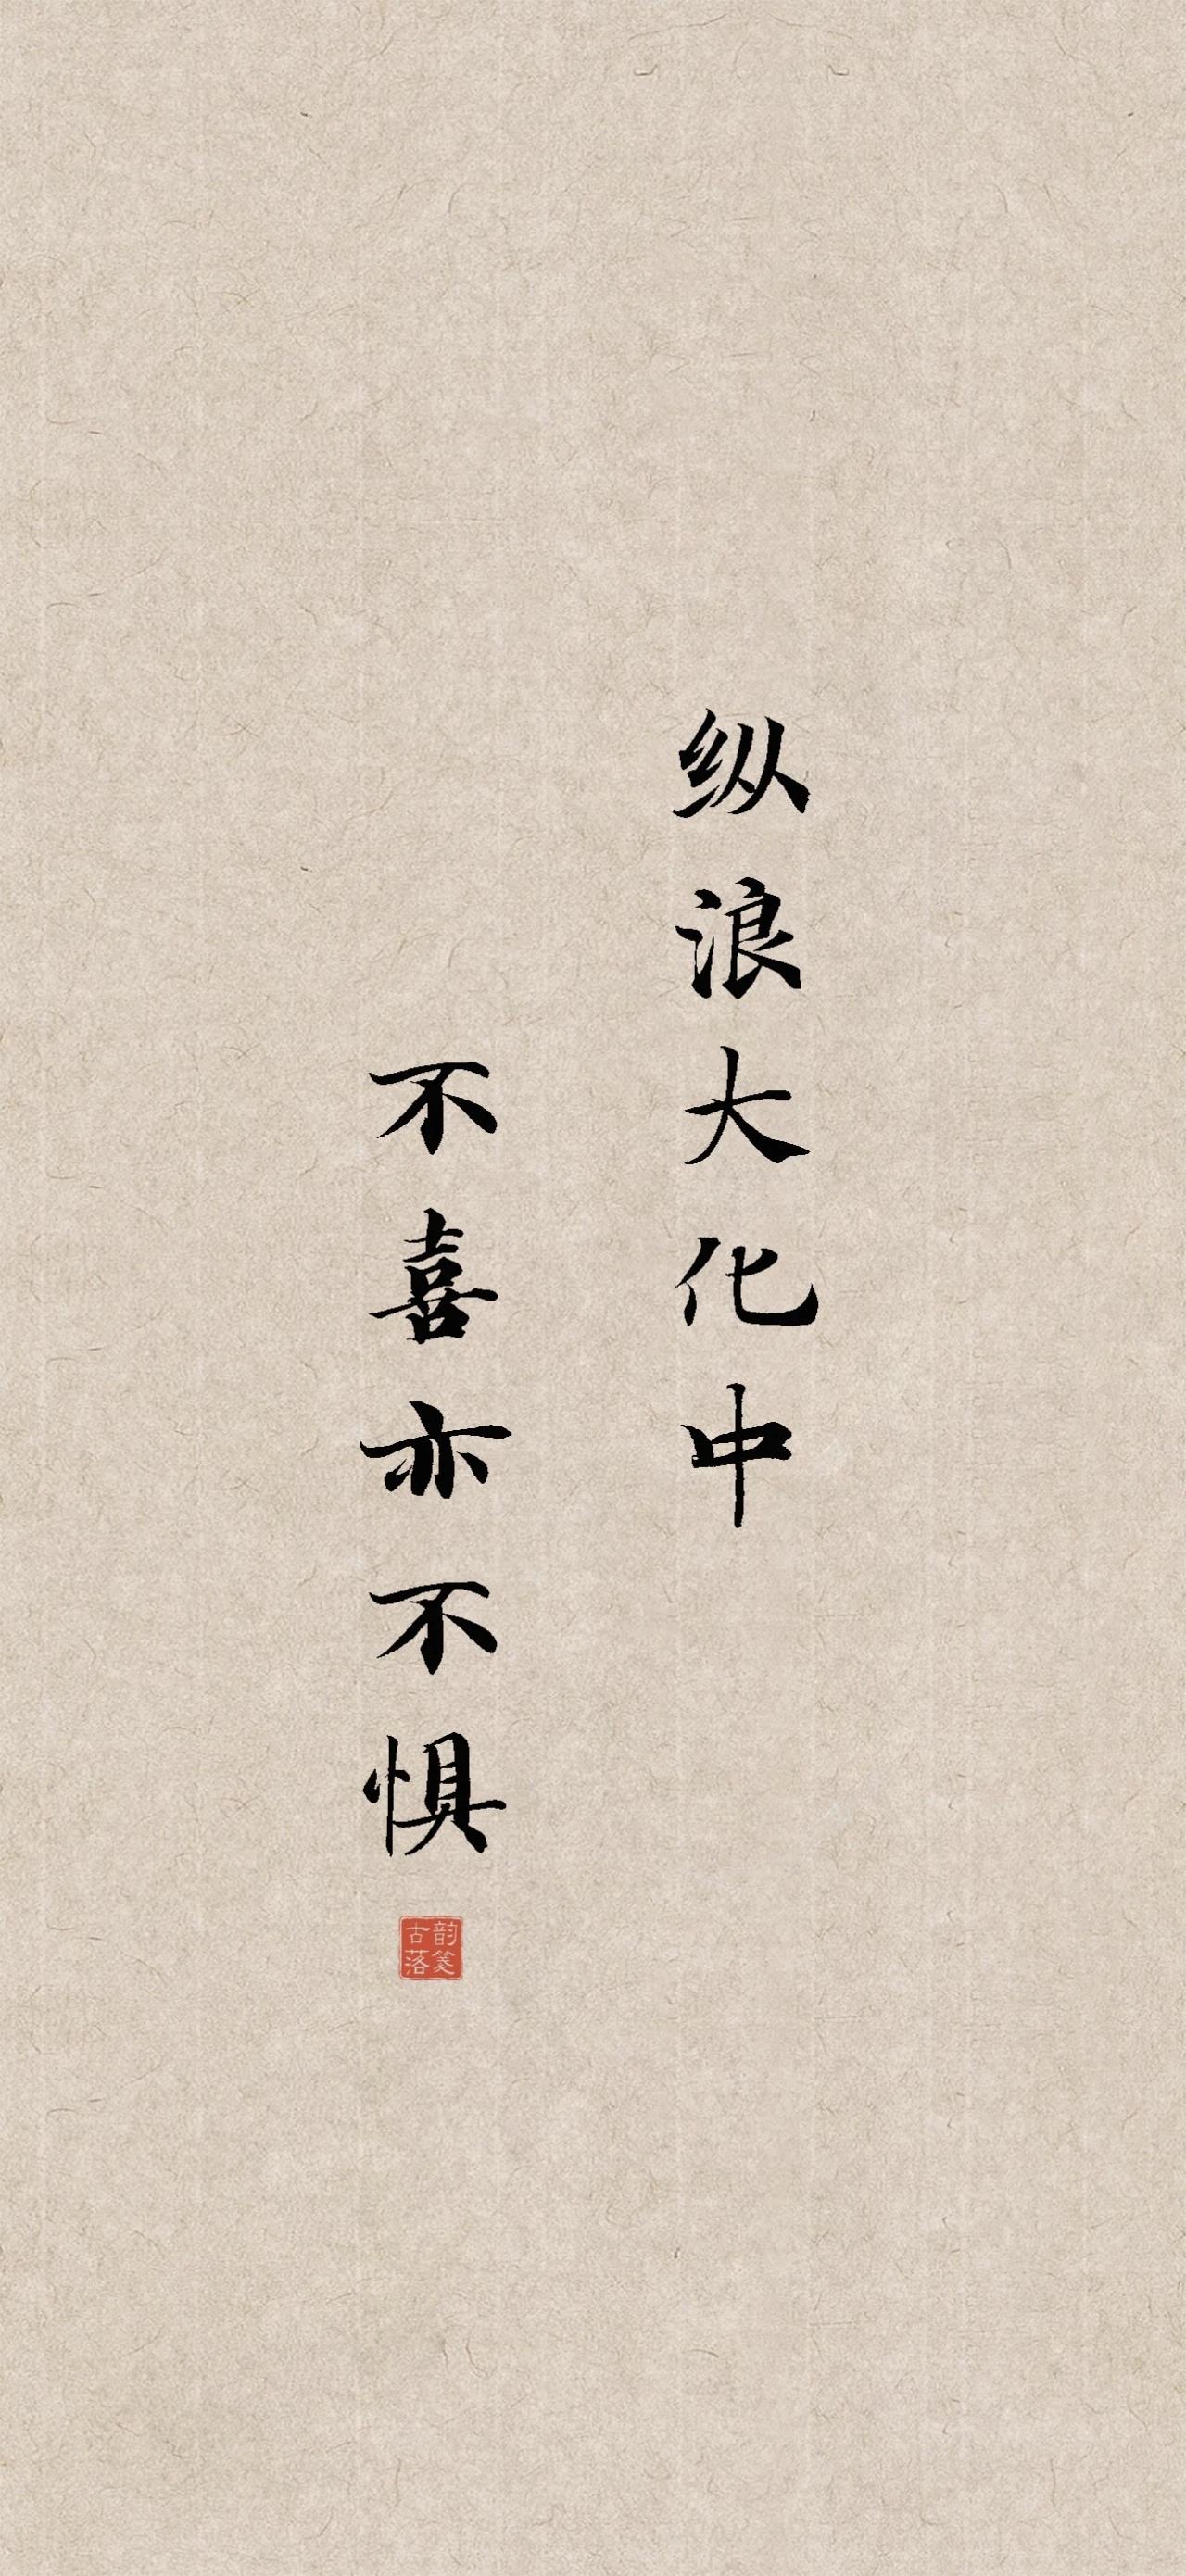 纵浪大化中
不喜亦不惧
韵笺
古落